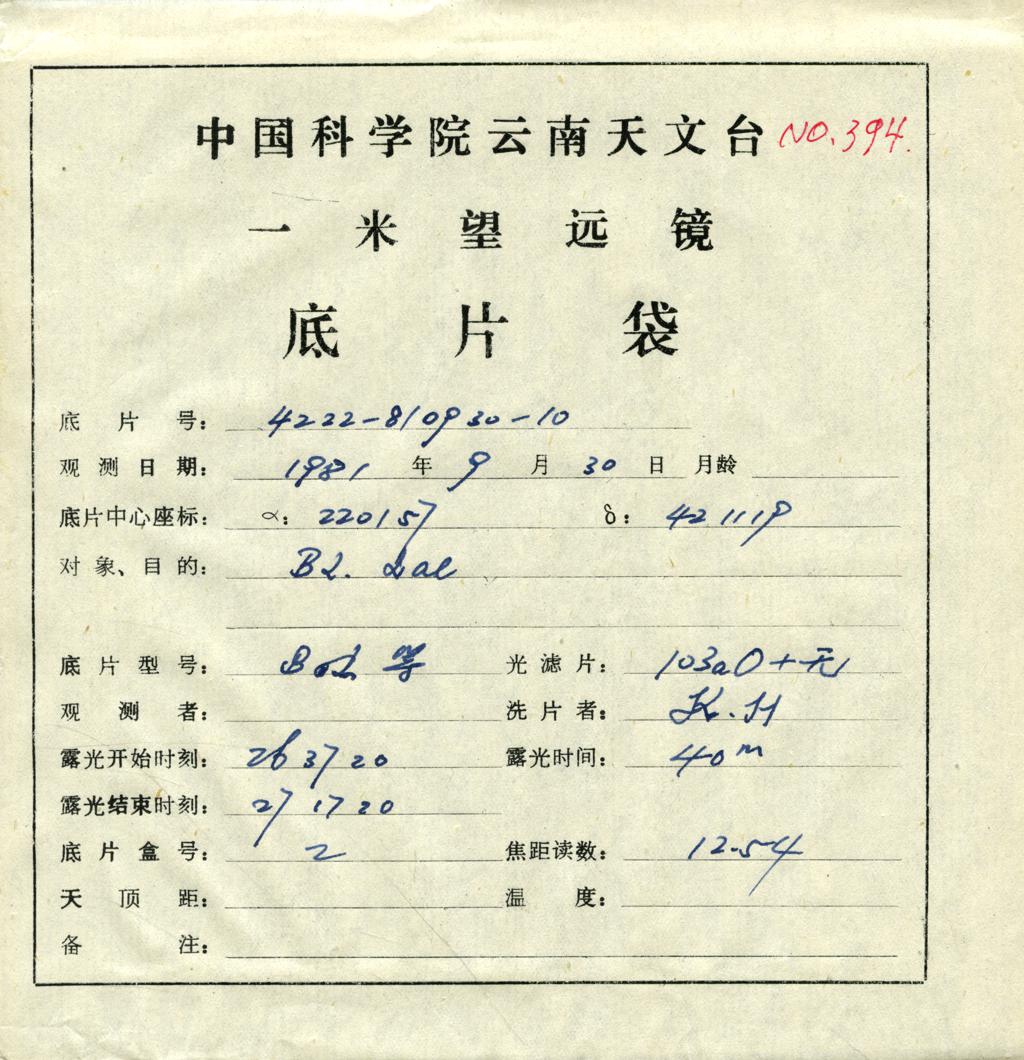 中国科学院云南天文台 NO.394.
一米望远镜
底片袋
底片号: 4222-810930-10
观测日期: 1981 年 9 月 30 日 月龄
底片中心座标: α: 220157 δ: 421119
对象、目的: BL. Lac
底片型号: 光滤片: 103aO+无
观测者: 洗片者: K.H
露光开始时刻: 26 37 20 露光时间: 40m
露光结束时刻: 27 17 20
底片盒号: 2 焦距读数: 12.54
天顶距: 温度:
备注: